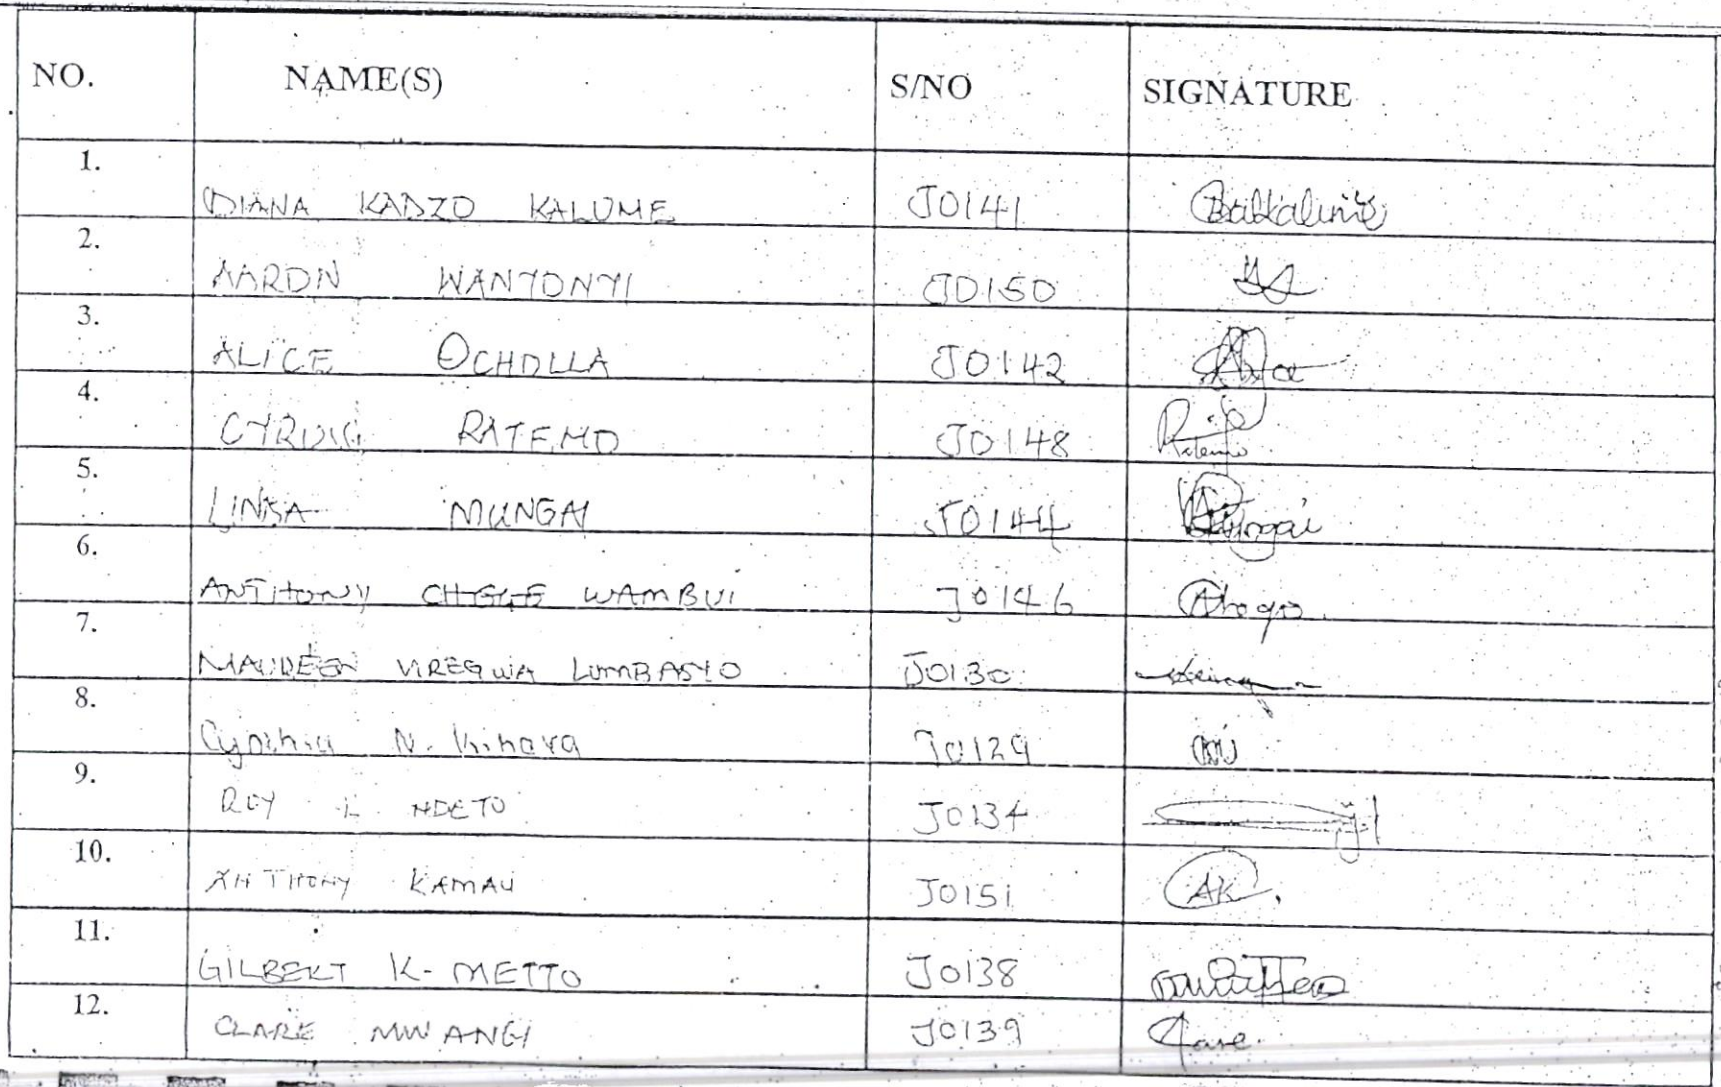 NO. NAME(S) S/NO SIGNATURE
1. DIANA KADZO KALUME J0141
2. AARON WANYONYI J0150
3. ALICE OCHOLLA J0142
4. RATEMO J0148 Ratemo
5. MUNGAI J0144 Mungai
6. ANTHONY CHEGE WAMBUI J0146
7. MAUREEN LUMBASYO J0130
8. Cynthia N. J0129
9. ROY L NDETO J0134
10. ANTHONY KAMAU J0151 AK.
11. GILBERT K- METTO J0138
12. CLARE MWANGI J0139 Clare.